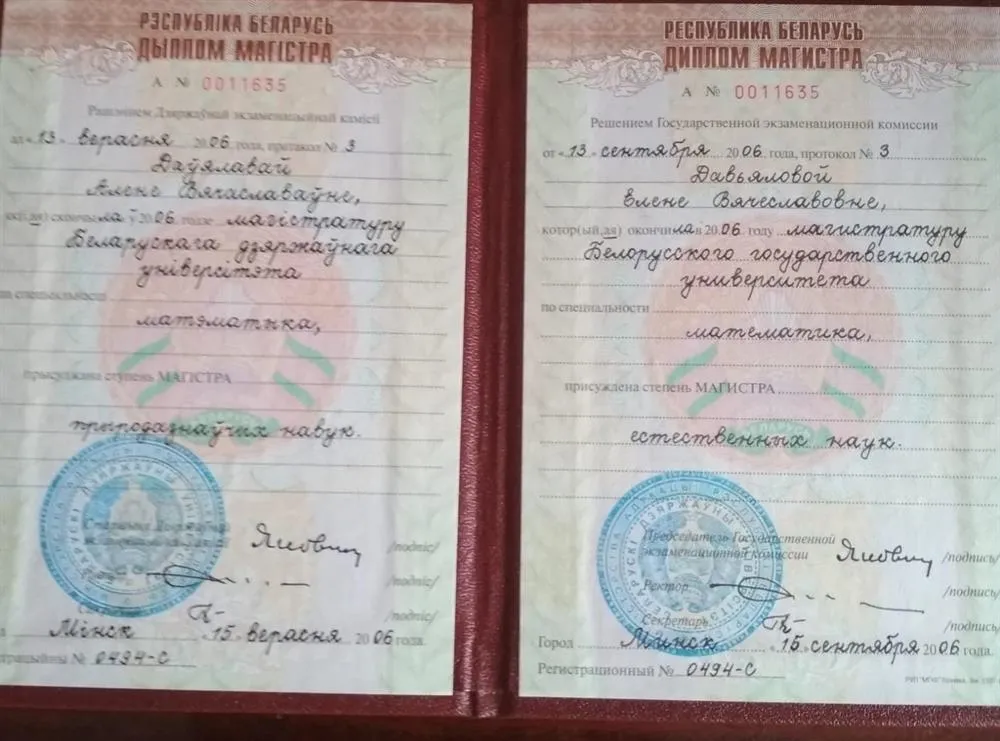 РЭСПУБЛІКА БЕЛАРУСЬ
ДЫПЛОМ МАГІСТРА
А № 0011635
Рашэннем Дзяржаўнай экзаменацыйнай камісіі
ад «13» верасня 2006 года, пратакол № 3
Даўялавай
Алене Вячаславаўне,
які(ая) скончыла ў 2006 годзе магістратуру
Беларускага дзяржаўнага
універсітэта
па спецыяльнасці
матэматыка,
прысуджана ступень МАГІСТРА
прыродазнаўчых навук.
Старшыня Дзяржаўнай
/подпіс/
/подпіс/
/подпіс/
Мінск «15» верасня 2006 года.
страцыйны № 0494-С
РЕСПУБЛИКА БЕЛАРУСЬ
ДИПЛОМ МАГИСТРА
А № 0011635
Решением Государственной экзаменационной комиссии
от «13» сентября 2006 года, протокол № 3
Давьяловой
Елене Вячеславовне,
котор(ый,ая) окончила в 2006 году магистратуру
Белорусского государственного
университета
по специальности
математика,
присуждена степень МАГИСТРА
БЕЛАРУСЬ
естественных наук.
Председатель Государственной
экзаменационной комиссии /подпись/
Ректор /подпись/
Секретарь /подпись/
Город Минск «15» сентября 2006 года.
Регистрационный № 0494-С